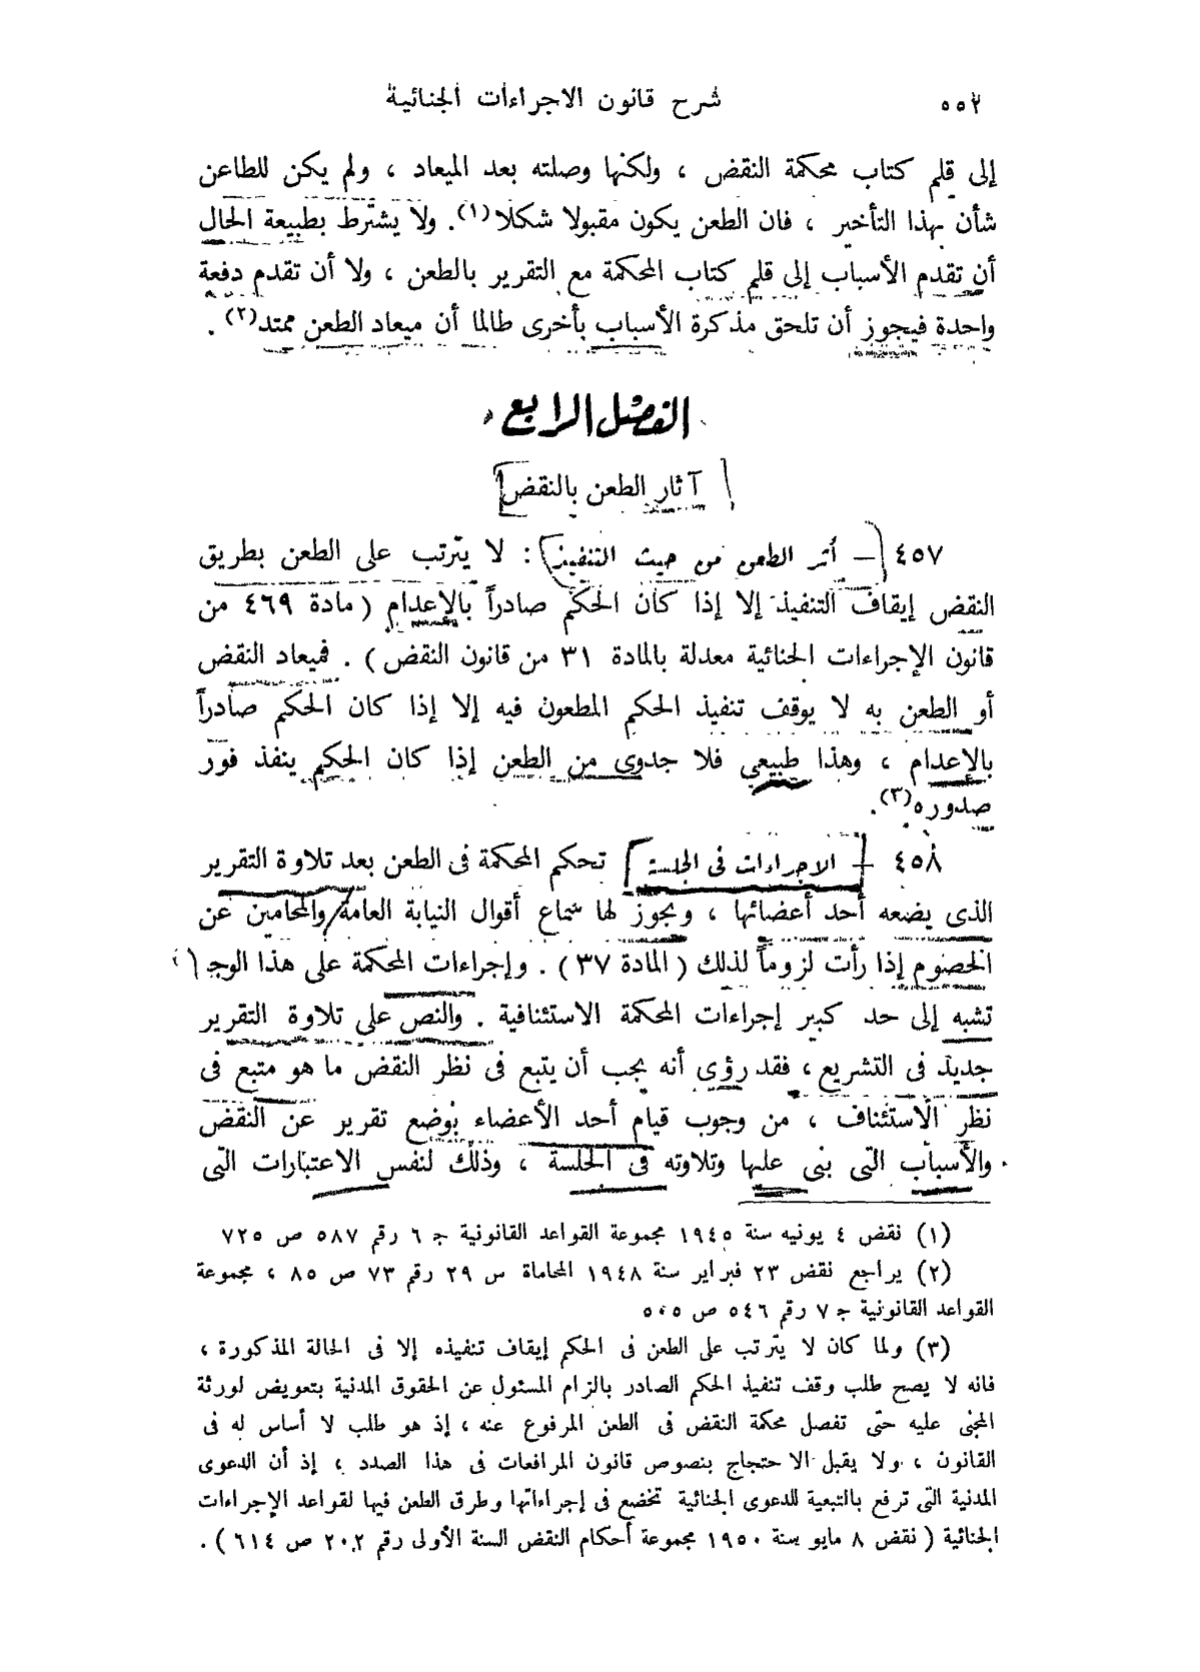 ٥٥٢
شرح قانون الاجراءات الجنائية
إلى قلم كتاب محكمة النقض ، ولكنها وصلته بعد الميعاد ، ولم يكن للطاعن
شأن بهذا التأخير ، فان الطعن يكون مقبولا شكلا (١). ولا يشترط بطبيعة الحال
أن تقدم الأسباب إلى قلم كتاب المحكمة مع التقرير بالطعن ، ولا أن تقدم دفعة
واحدة فيجوز أن تلحق مذكرة الأسباب بأخرى طالما أن ميعاد الطعن ممتد(٢) .
الفصل الرابع
آثار الطعن بالنقض
٤٥٧ – أثر الطعن من حيث التنفيذ : لا يترتب على الطعن بطريق
النقض إيقاف التنفيذ إلا إذا كان الحكم صادراً بالإعدام ( مادة ٤٦٩ من
قانون الإجراءات الجنائية معدلة بالمادة ٣١ من قانون النقض ) . فميعاد النقض
أو الطعن به لا يوقف تنفيذ الحكم المطعون فيه إلا إذا كان الحكم صادراً
بالإعدام ، وهذا طبيعي فلا جدوى من الطعن إذا كان الحكم ينفذ فور
صدوره(٣).
٤٥٨ – الاجراءات فى الجلسة تحكم المحكمة فى الطعن بعد تلاوة التقرير
الذى يضعه أحد أعضائها ، ويجوز لها سماع أقوال النيابة العامة والمحامين عن
الخصوم إذا رأت لزوماً لذلك ( المادة ٣٧ ) . وإجراءات المحكمة على هذا الوجه
تشبه إلى حد كبير إجراءات المحكمة الاستئنافية . والنص على تلاوة التقرير
جديد فى التشريع ، فقد رؤى أنه يجب أن يتبع فى نظر النقض ما هو متبع فى
نظر الاستئناف ، من وجوب قيام أحد الأعضاء بوضع تقرير عن النقض
والأسباب التى بنى عليها وتلاوته فى الجلسة ، وذلك لنفس الاعتبارات التى
(١) نقض ٤ يونيه سنة ١٩٤٥ مجموعة القواعد القانونية ج ٦ رقم ٥٨٧ ص ٧٢٥
(٢) يراجع نقض ٢٣ فبراير سنة ١٩٤٨ المحاماة س ٢٩ رقم ٧٣ ص ٨٥ ، مجموعة
القواعد القانونية ج ٧ رقم ٥٤٦ ص ٥٠٥
(٣) ولما كان لا يترتب على الطعن فى الحكم إيقاف تنفيذه إلا فى الحالة المذكورة ،
فانه لا يصح طلب وقف تنفيذ الحكم الصادر بالزام المسئول عن الحقوق المدنية بتعويض لورثة
المجنى عليه حتى تفصل محكمة النقض فى الطعن المرفوع عنه ، إذ هو طلب لا أساس له فى
القانون ، ولا يقبل الاحتجاج بنصوص قانون المرافعات فى هذا الصدد ، إذ أن الدعوى
المدنية التى ترفع بالتبعية للدعوى الجنائية تخضع فى إجراءاتها وطرق الطعن فيها لقواعد الإجراءات
الجنائية ( نقض ٨ مايو سنة ١٩٥٠ مجموعة أحكام النقض السنة الأولى رقم ٢٠٢ ص ٦١٤ ) .